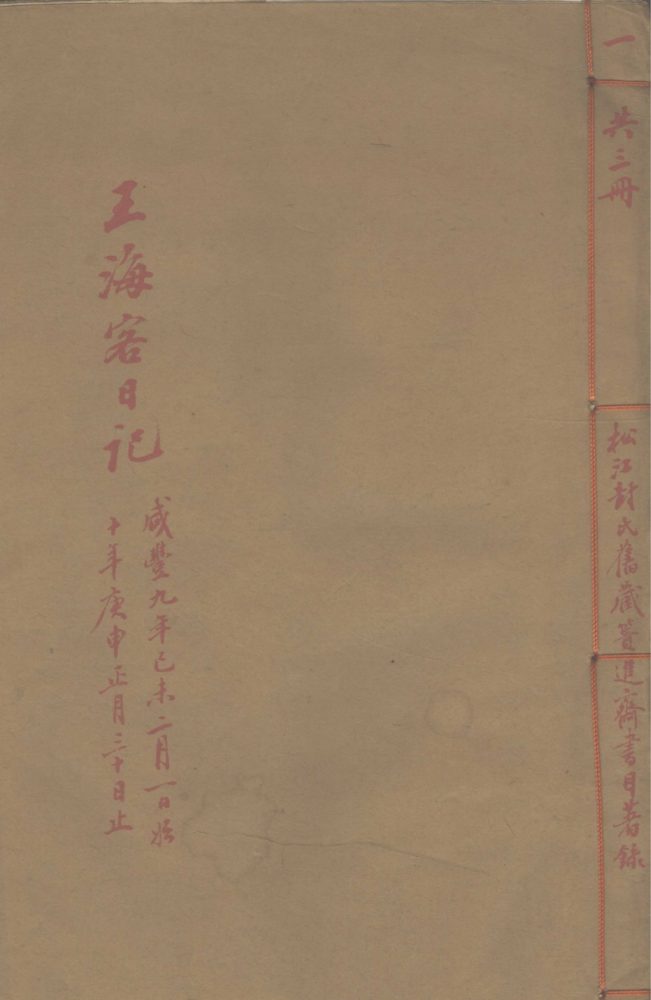 一 共三冊
松江封氏舊藏簣進齋書目著錄
王海客日記
咸豐九年己未二月一日始
十年庚申正月三十日止